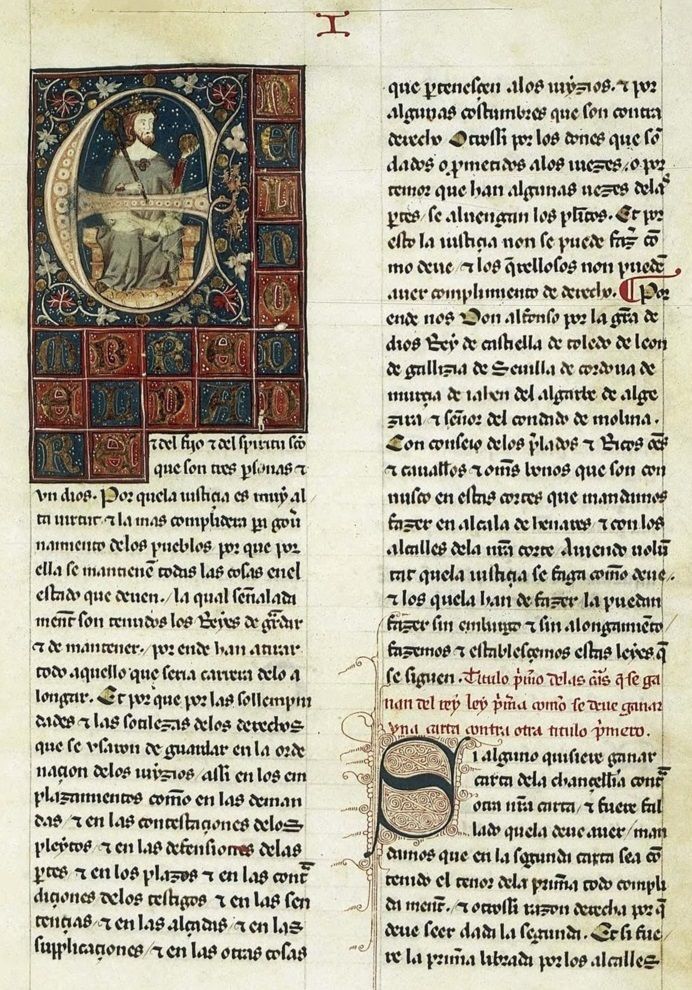 I
EN EL NO
MBRE D
EL PAD
RE
⁊ del fijo ⁊ del spiritu sc̃o
que son tres p̃sonas ⁊
vn dios. Por que la iustiçia es muy al
ta uirtut ⁊ la mas complidera pa gou̾
namiento delos pueblos por que por
ella se mantienẽ todas las cosas enel
estado que deuen / la qual señalada
ment̃ son tenudos los Reyes de gũdar
⁊ de mantener / por ende han a tirar
todo aquello que seria carrera delo a
longar. Et por que por las sollempni
dades ⁊ las sotilezas delos derechos
que se vsaron de guardar en la orde
naçion delos iuyzios assi en los em
plazamientos com̃o en las deman
das / ⁊ en las contestaçiones delos
pleytos / ⁊ en las defensiones delas
p̃tes / ⁊ en los plazos ⁊ en las cont̃
diçiones delos testigos ⁊ en las sen
tençias / ⁊ en las alçadas / ⁊ en las
supplicaçiones / ⁊ en las otras cosas
que p̃tenesçen alos iuyzios. ⁊ por
algunas costumbres que son contra
derecho Otrossi por los dones que sõ
dados o p̃metidos alos iuezes / o por
temor que han algunas uezes delas
p̃tes / se aluengan los pl̃itos. Et por
esto la iustiçia non se puede faz̃ cõ
mo deue / ⁊ los q̃rellosos non puedẽ
auer complimiento de derecho. Por
ende nos Don alfonso por la gr̃a de
dios Rey de castiella de toledo de leon
de gallizia de Seuilla de cordoua de
murçia de iahen del algarbe de alge
zira / ⁊ señor del condado de molina.
Con conseio delos p̃lados ⁊ Ricos oẽs
⁊ cauall̃os ⁊ om̃s bonos que son con
nusco en estas cortes que mandamos
fazer en alcala de henares ⁊ con los
alcalles dela nr̃a corte Auiendo volũ
tat que la iustiçia se faga com̃o deue /
⁊ los que la han de fazer la puedan
fazer sin embargo ⁊ sin alongamiẽto
fazemos ⁊ establesçemos estas leyes q̃
se siguen. Titulo p̃mo delas cãs q̃ se ga
nan del rey ley p̃ma com̃o se deue ganar
vna carta contra otra titulo p̃mero.
Si alguno quisiere ganar
carta dela chançell̃ia cont̃
otra nr̃a carta / ⁊ fuere fal
lado que la deue auer / man
damos que en la segunda carta sea cõ
tenido el tenor dela prim̃a todo compli
da ment̃ / ⁊ otrossi razon derecha por q̃
deue seer dada la segunda. Et si fue
re la prim̃a librada por los alcalles